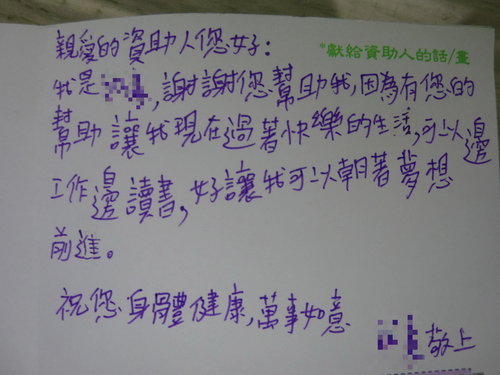 *獻給資助人的話/畫
親愛的資助人您好：
我是，謝謝您幫助我，因為有您的
幫助讓我現在過著快樂的生活，可以邊
工作邊讀書，好讓我可以朝著夢想
前進。
祝您身體健康，萬事如意
敬上